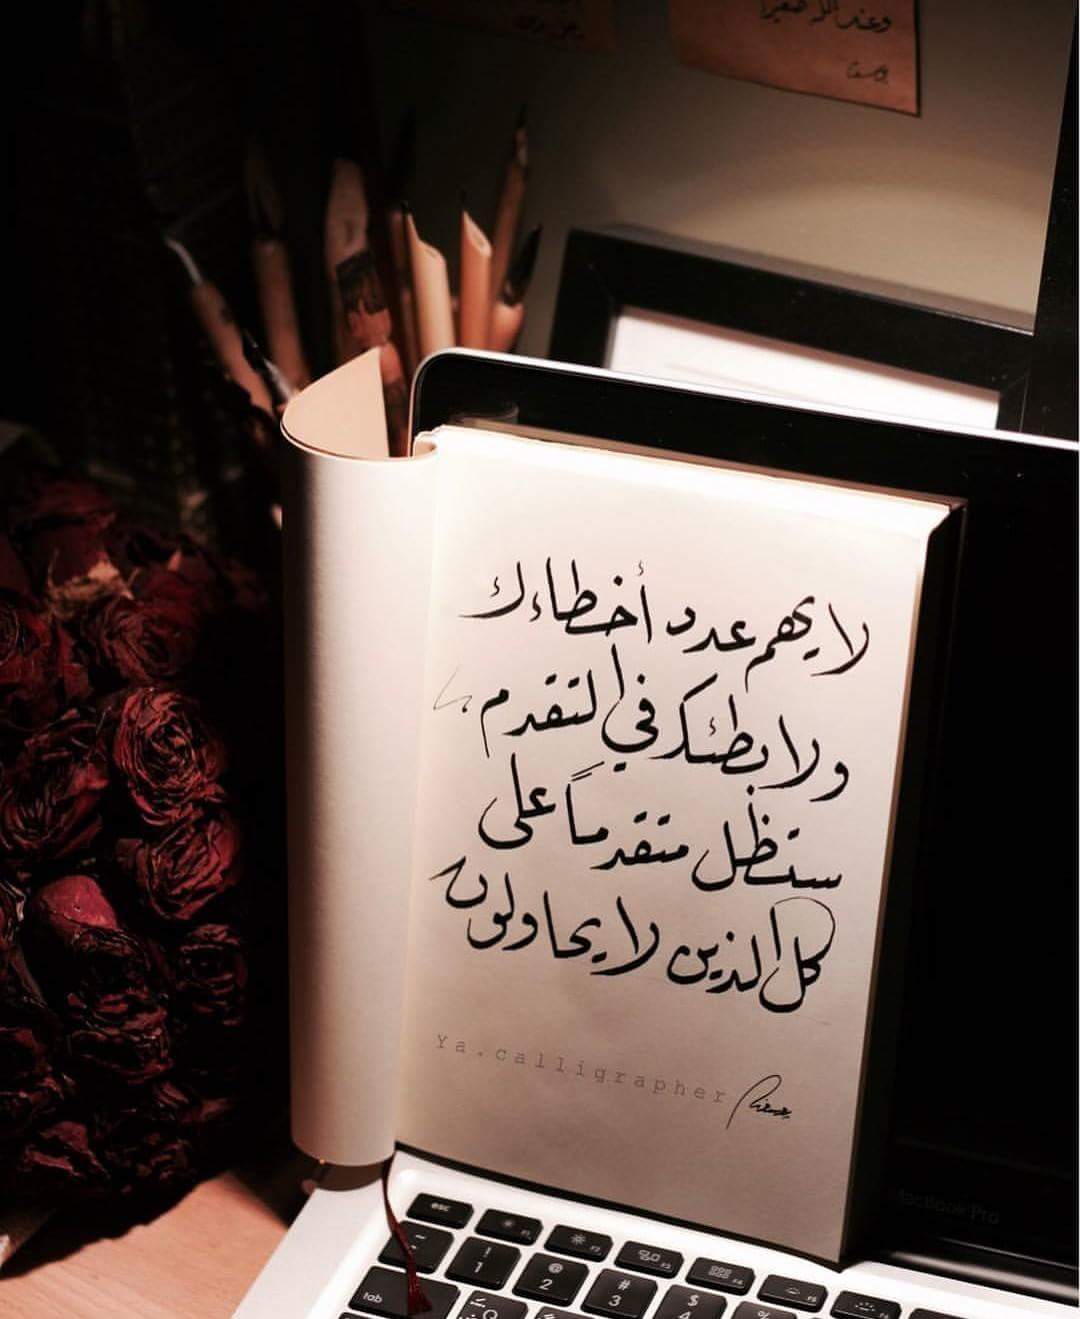 وعند الله
لا يهم عدد أخطاءك
ولا بطئك في التقدم،
ستظل متقدماً على
كل الذين لا يحاولون
Ya.calligrapher
MacBook Pro
esc F1 F2 F3 F4 F5 F6
~ ! 1 @ 2 # 3 $ 4 %
tab Q